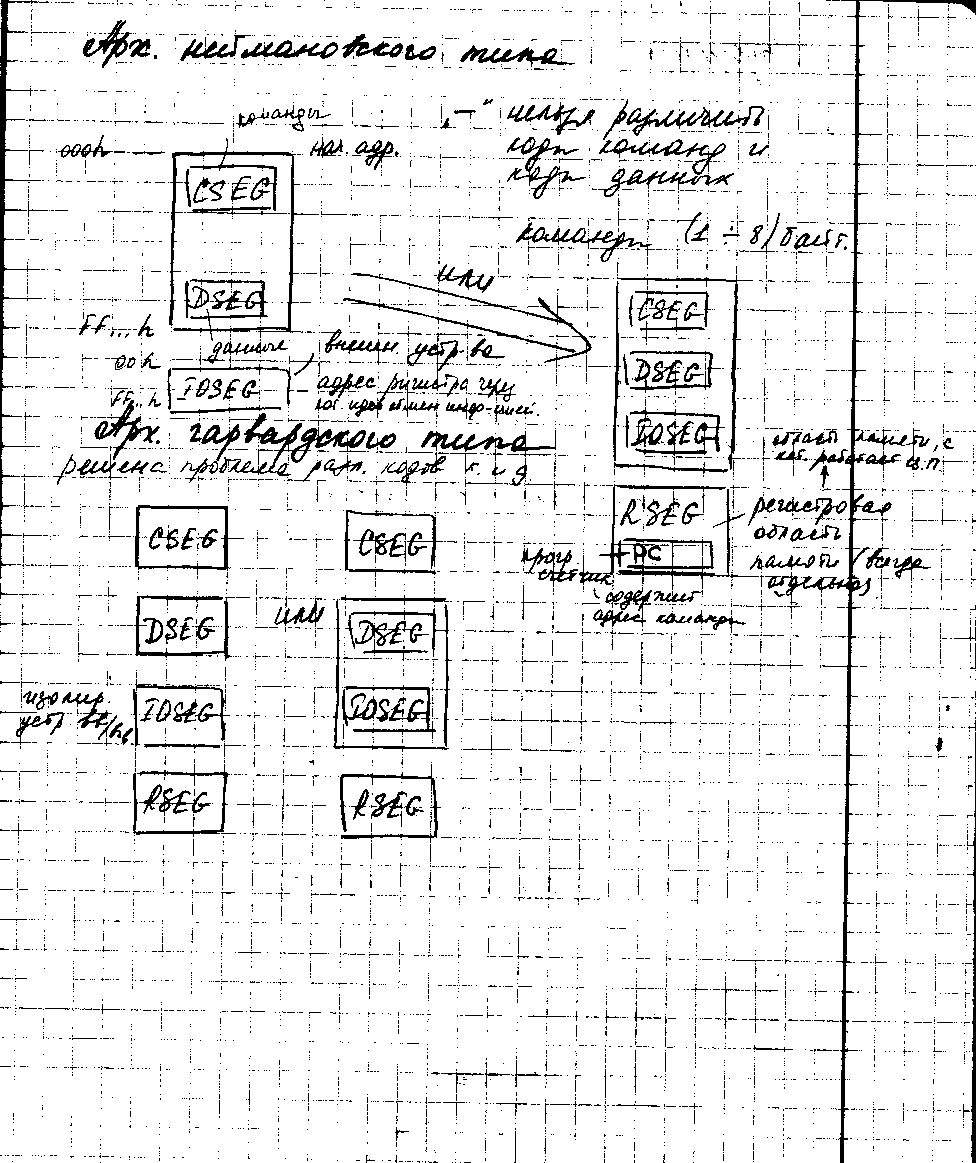 Арх. неймановского типа
команды
„—“ нельзя различить
000h
нач. адр.
коды команд и
CSEG
коды данных
команды (1 ÷ 8) байт.
или
DSEG
CSEG
FF...h
данные
внешн. устр-ва
00h
DSEG
IOSEG
адрес регистра через
FF...h
кот. идёт обмен инфо-цией.
IOSEG
Арх. гарвардского типа
область памяти, с
решена проблема разл. кодов к. и д.
кот. работает ЦП
RSEG
регистровая
область
CSEG
CSEG
прогр.
счётчик
PC
памяти (всегда
отдельная)
содержит
адрес команды
DSEG
или
DSEG
изолир.
устр. вв/выв
IOSEG
IOSEG
RSEG
RSEG